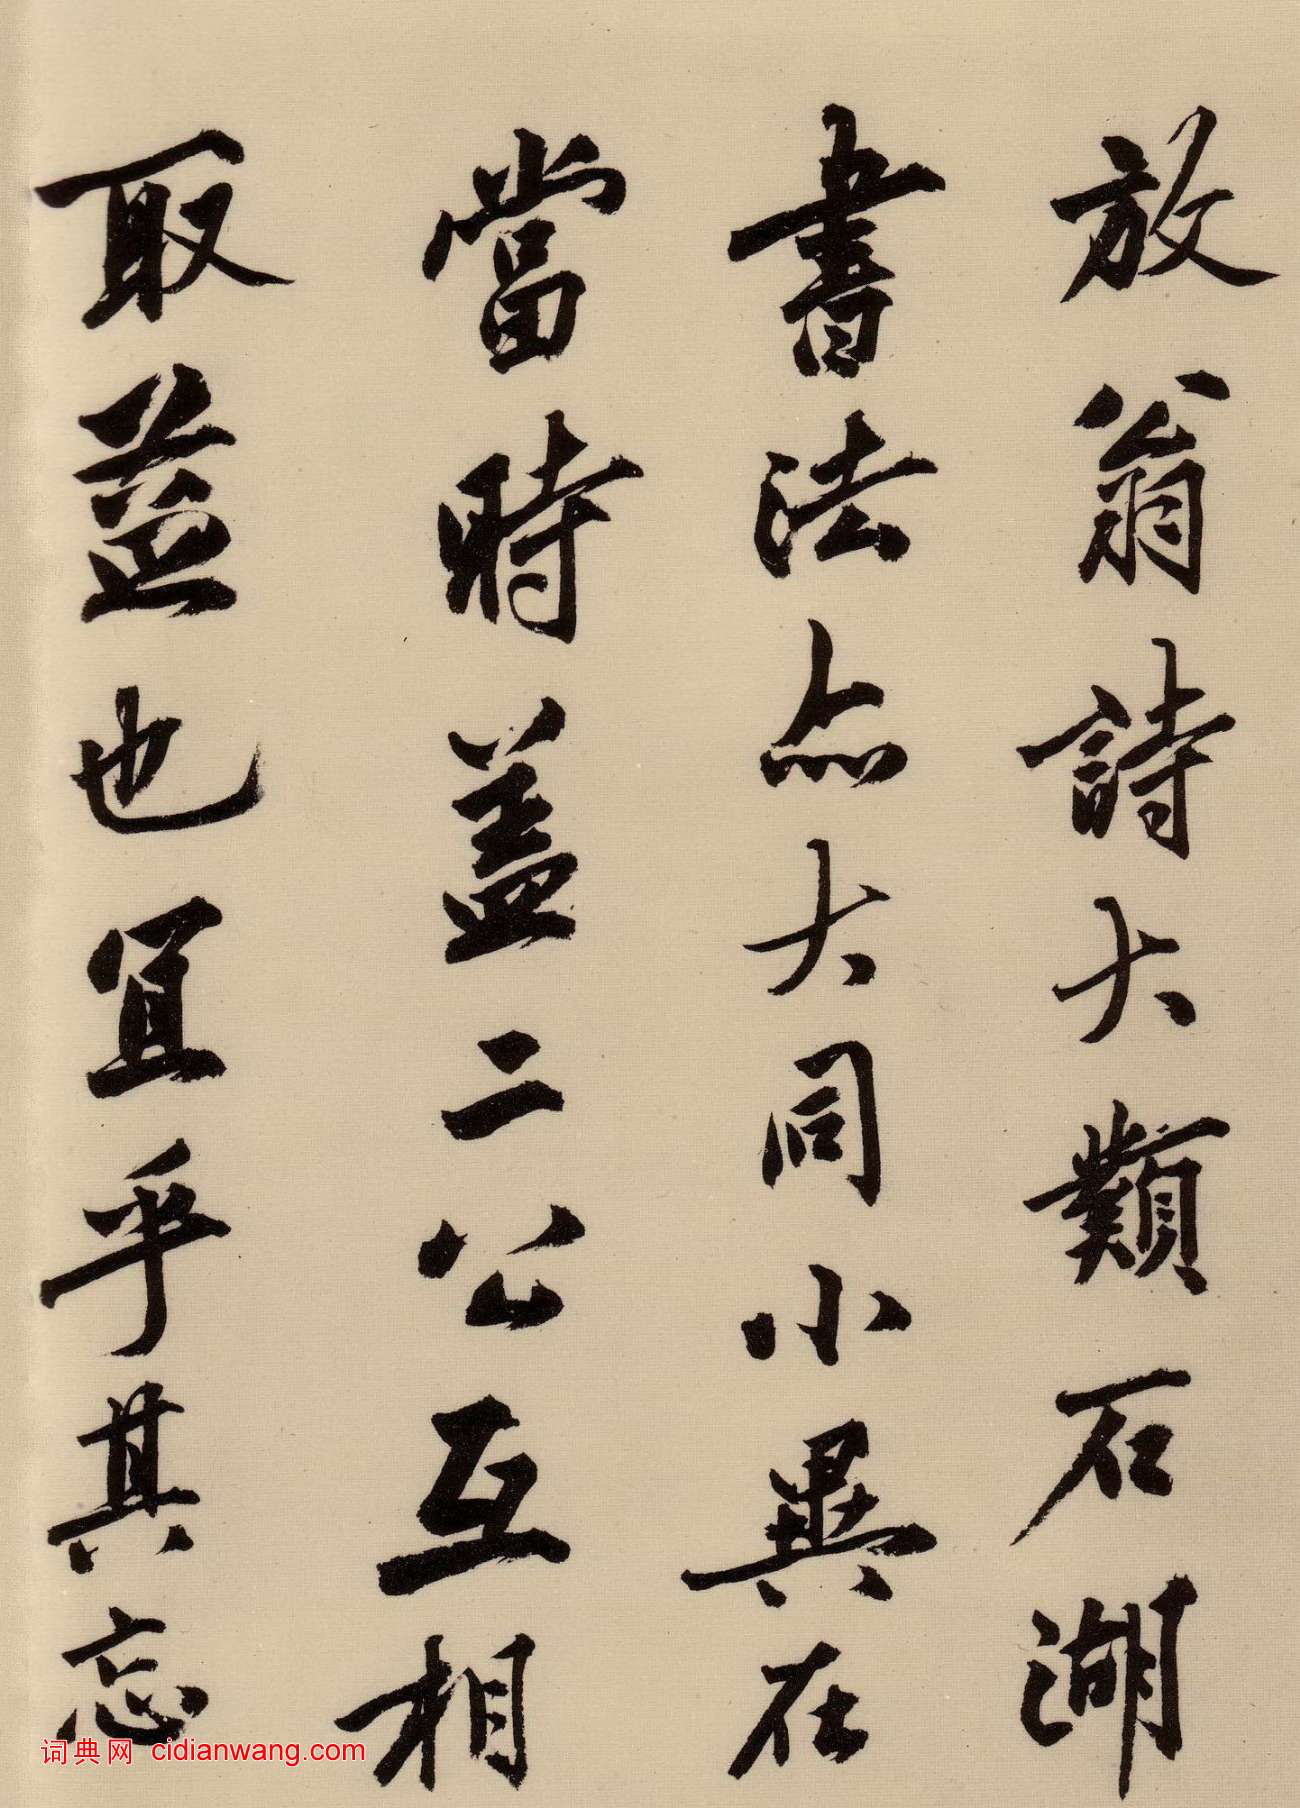 放翁詩大類石湖
書法亦大同小異在
當時蓋二公互相
取益也宜乎其忘
词典网 cidianwang.com